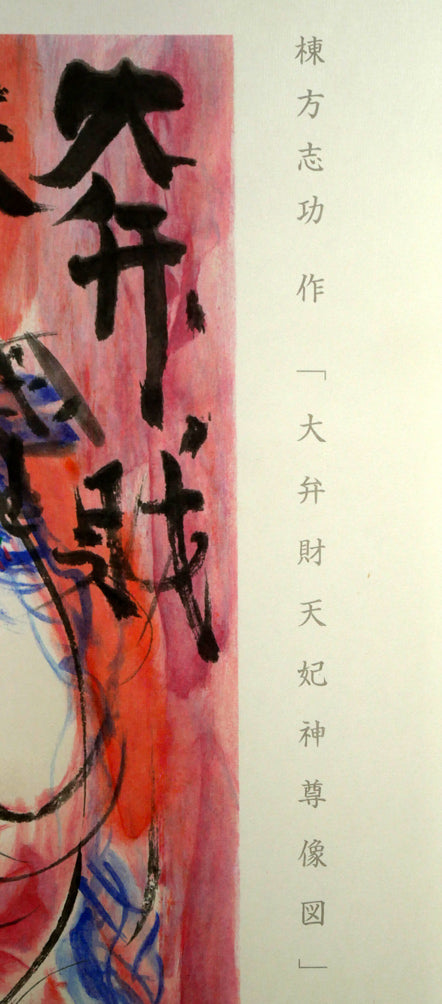 棟方志功 作 「大弁財天妃神尊像図」
大弁財
天